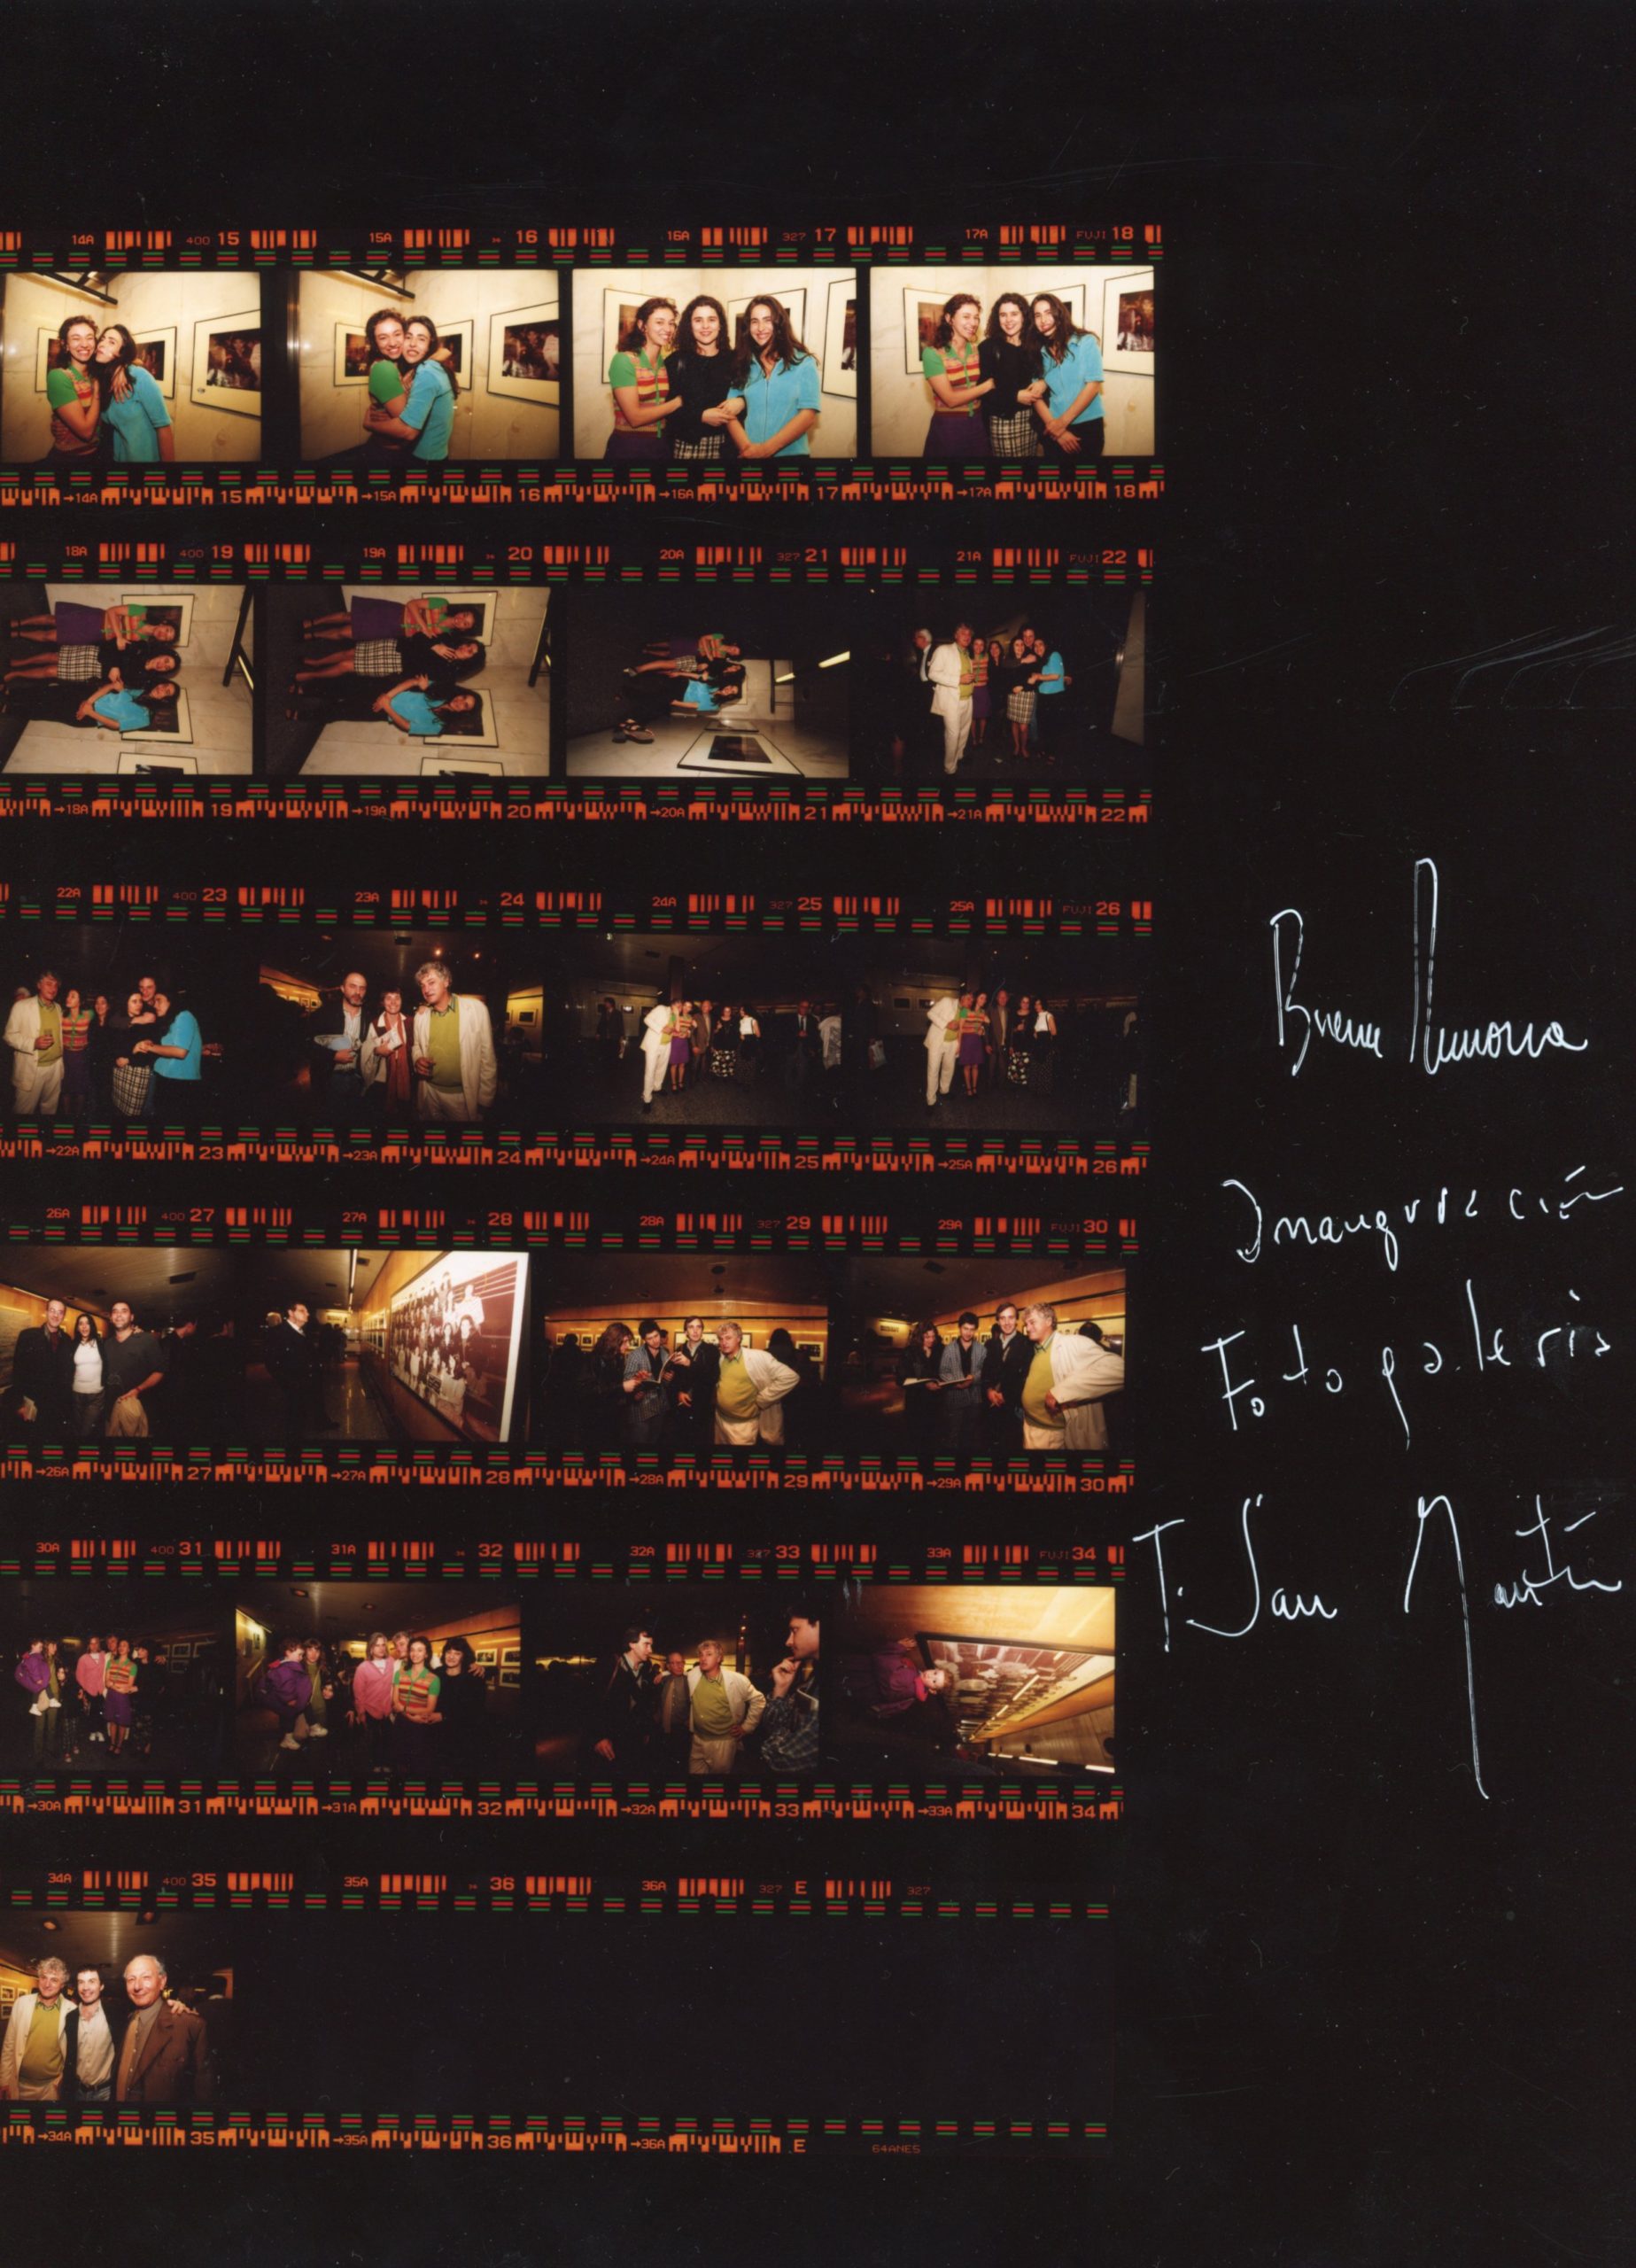 14A 400 15 15A 16 16A 327 17 17A FUJI 18
→14A 15 →15A 16 →16A 17 →17A 18
18A 400 19 19A 20 20A 327 21 21A FUJI 22
→18A 19 →19A 20 →20A 21 →21A 22
22A 400 23 23A 24 24A 327 25 25A FUJI 26
→22A 23 →23A 24 →24A 25 →25A 26
26A 400 27 27A 28 28A 327 29 29A FUJI 30
→26A 27 →27A 28 →28A 29 →29A 30
30A 400 31 31A 32 32A 327 33 33A FUJI 34
→30A 31 →31A 32 →32A 33 →33A 34
34A 400 35 35A 36 36A 327 E 327
→34A 35 →35A 36 →36A E 64ANES
Buena Memoria
Inauguración
Fotogalería
T. San Martín